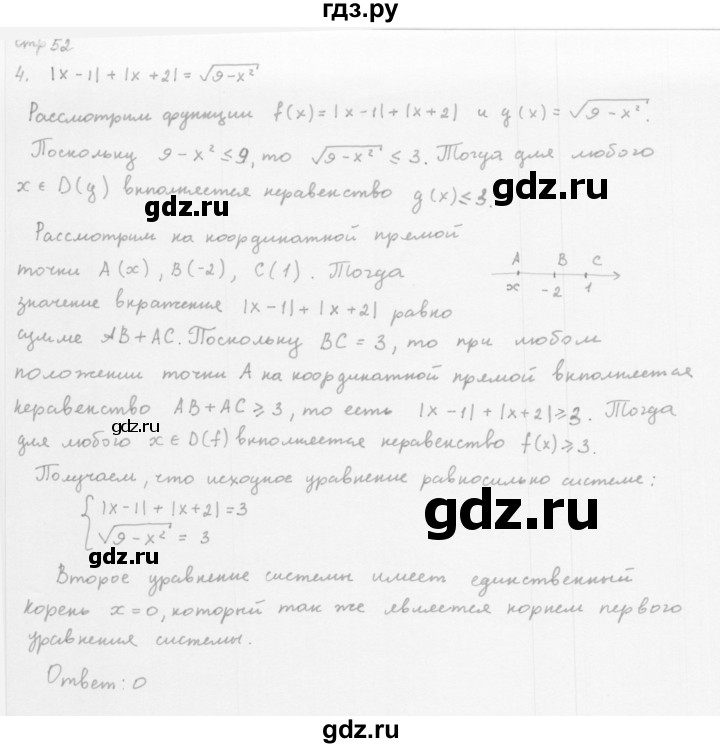 гдз.ру
стр 52
4. |x-1|+|x+2|=√9-x²
Рассмотрим функции f(x)=|x-1|+|x+2| и g(x)=√9-x².
Поскольку 9-x²≤9, то √9-x² ≤ 3. Тогда для любого
x ∈ D(g) выполняется неравенство g(x)≤3.
gdz.ru
gdz.ru
Рассмотрим на координатной прямой
точки A(x), B(-2), C(1). Тогда
A B C
x -2 1
значение выражения |x-1|+|x+2| равно
сумме AB+AC. Поскольку BC=3, то при любом
положении точки A на координатной прямой выполняется
неравенство AB+AC≥3, то есть |x-1|+|x+2|≥3. Тогда
gdz.ru
для любого x∈D(f) выполняется неравенство f(x)≥3.
Получаем, что исходное уравнение равносильно системе:
{ |x-1|+|x+2|=3
√9-x² = 3
gdz.ru
gdz.ru
Второе уравнение системы имеет единственный
корень x=0, который так же является корнем первого
уравнения системы.
Ответ: 0
gdz.ru